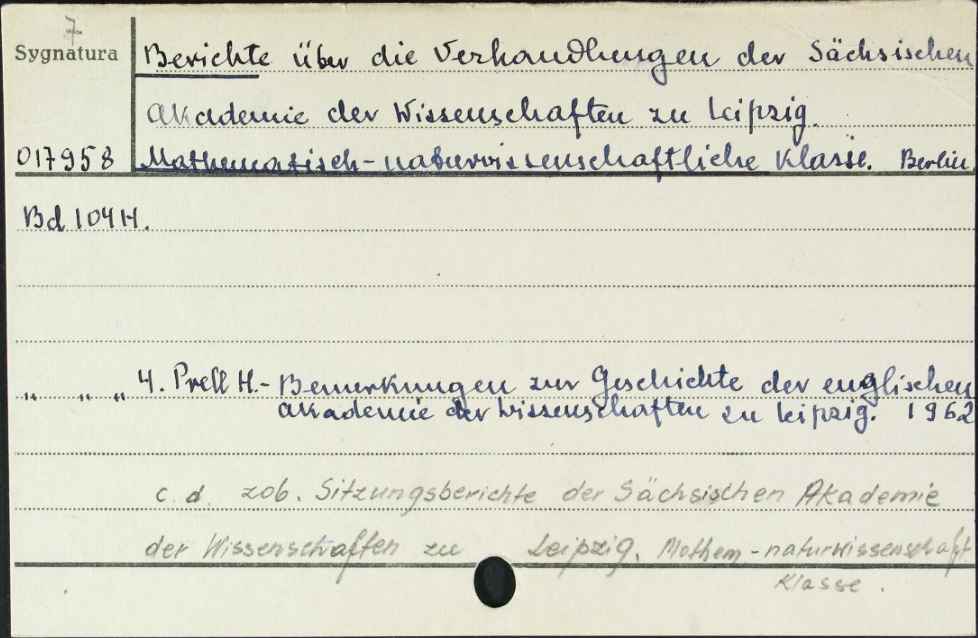 7
Sygnatura
Berichte über die Verhandlungen der Sächsischen
Akademie der Wissenschaften zu Leipzig.
017958
Mathematisch-naturwissenschaftliche Klasse. Berlin
Bd 104 H.
" " " 4. Prell H.- Bemerkungen zur Geschichte der englischen
Akademie der Wissenschaften zu Leipzig. 1962
c. d. zob. Sitzungsberichte der Sächsischen Akademie
der Wissenschaften zu Leipzig. Mathem-naturwissenschaft
Klasse.